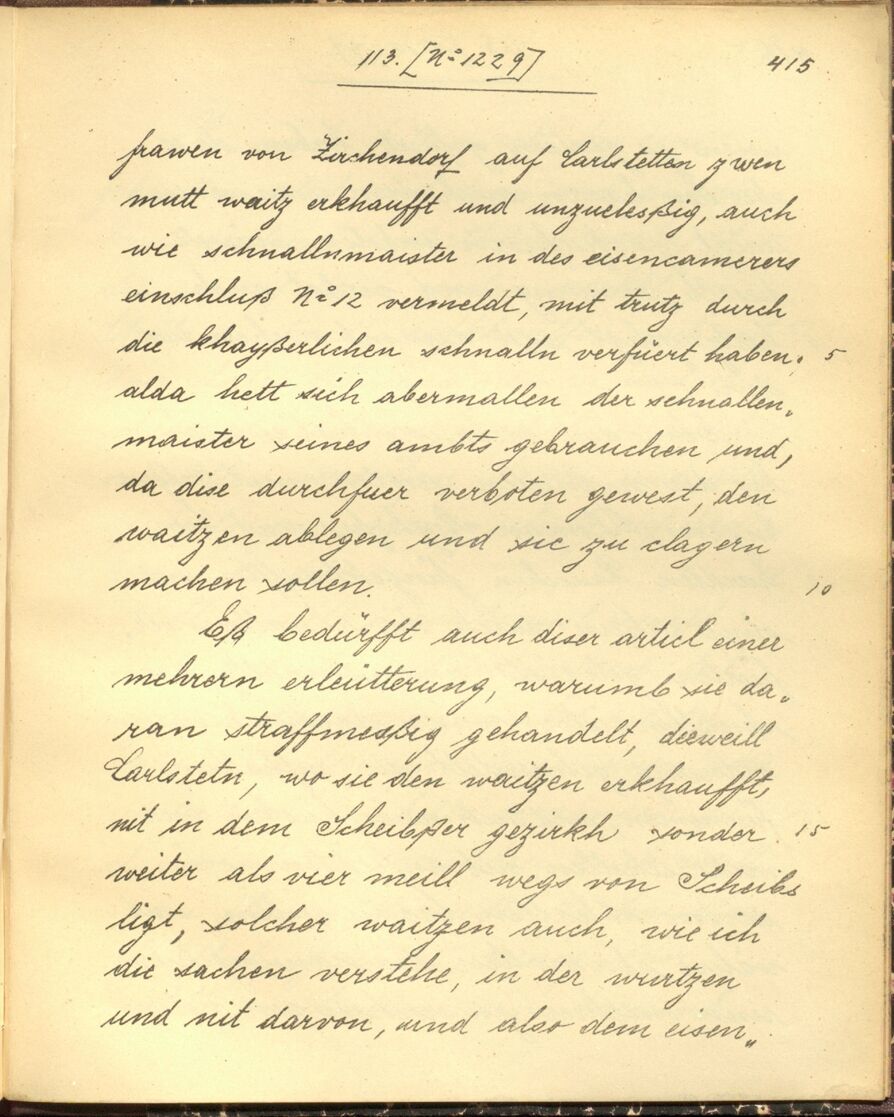 113. [No 1229] 415
frawen von Zirchendorf auf Carlstetten zwen
mutt waitz erkhaufft und unzueleßig, auch
wie schnallnmaister in des eisencamerers
einschluß No 12 vermeldt, mit trutz durch
die khayßerlichen schnalln verfüert haben. 5
alda hett sich abermallen der schnallen„
maister seines ambts gebrauchen und,
da dise durchfuer verboten gewest, den
waitzen ablegen und sie zu clagern
machen sollen. 10
Eß bedürfft auch diser articl einer
mehrern erleütterung, warumb sie da„
ran straffmeßig gehandelt, dieweill
Carlstetn, wo sie den waitzen erkhaufft,
nit in dem Scheibßer gezirkh sonder 15
weiter als vier meill wegs von Scheibs
ligt, solcher waitzen auch, wie ich
die sachen verstehe, in der wurtzen
und nit darvon, und also dem eisen„